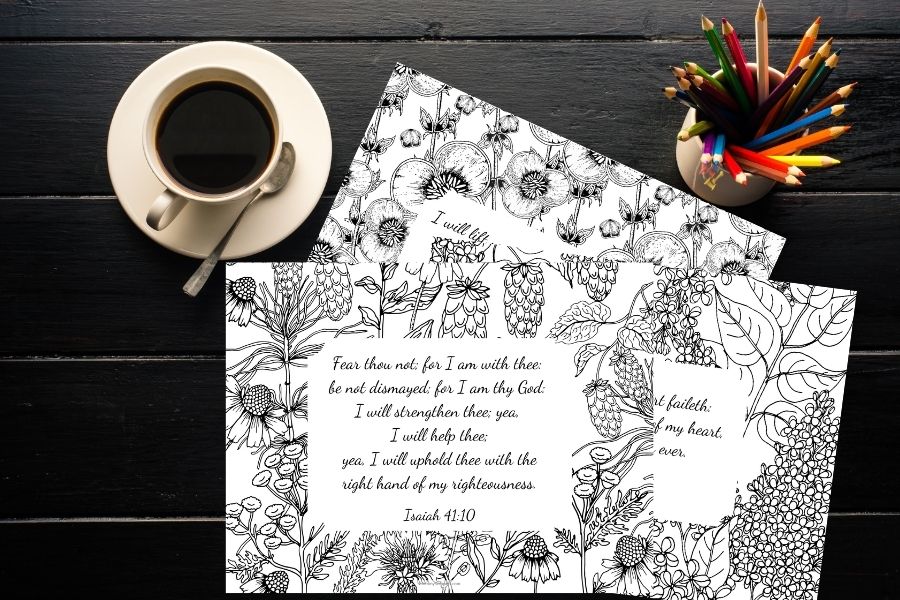 I will lif
Fear thou not; for I am with thee:
be not dismayed; for I am thy God:
I will strengthen thee; yea,
I will help thee;
yea, I will uphold thee with the
right hand of my righteousness.
Isaiah 41:10
rt faileth:
f my heart,
ever.